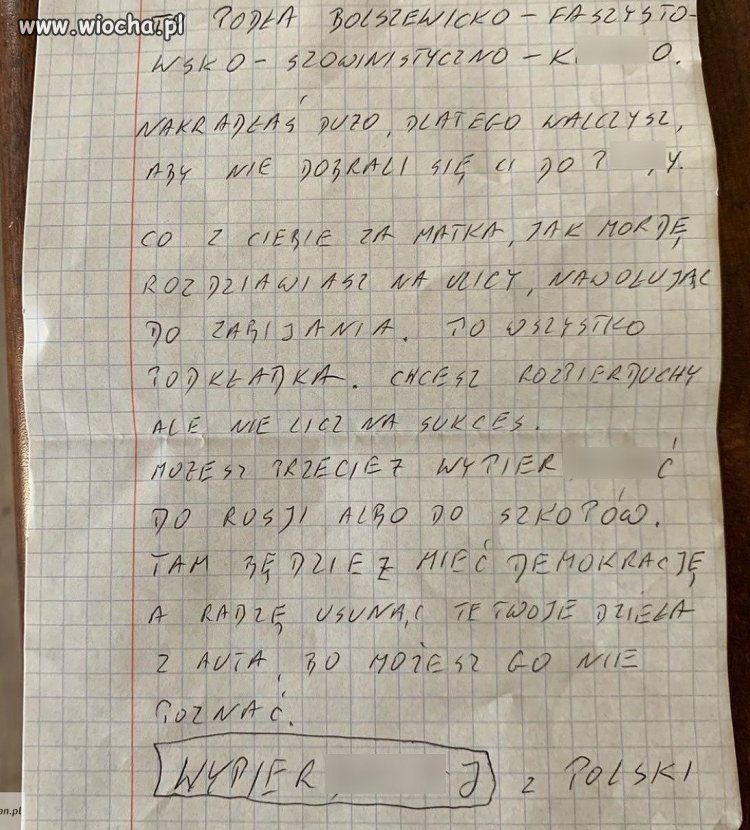 www.wiocha.pl
TY PODŁA BOLSZEWICKO - FASZYSTO-
WSKO - SZOWINISTYCZNO - K. O.
NAKRADŁAŚ DUŻO, DLATEGO WALCZYSZ,
ABY NIE DOBRALI SIĘ CI DO Y.
CO Z CIEBIE ZA MATKA, JAK MORDĘ
ROZDZIAWIASZ NA ULICY, NAWOŁUJĄC
DO ZABIJANIA. TO WSZYSTKO
PODKŁADKA. CHCESZ ROZPIERDUCHY
ALE NIE LICZ NA SUKCES.
MOŻESZ PRZECIEŻ WYPIER Ć
DO ROSJI ALBO DO SZKOPÓW.
TAM BĘDZIEZ MIEĆ DEMOKRACJĘ
A RADZĘ USUNĄĆ TE TWOJE DZIEŁA
Z AUTA, BO MOŻESZ GO NIE
POZNAĆ.
WYPIER J Z POLSKI
an.pl